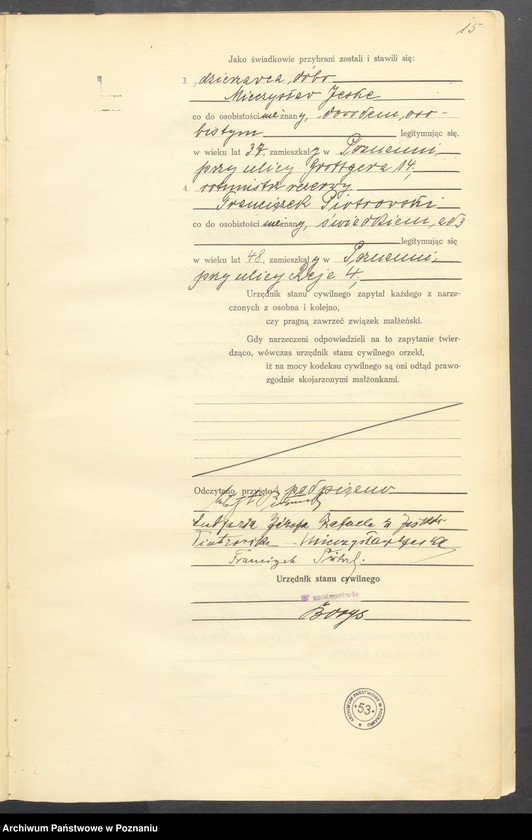 15
Jako świadkowie przybrani zostali i stawili się:
3. dzierżawca dóbr
Mieczysław Jeske
co do osobistości znany, dowodem oso-
bistym legitymując się.
w wieku lat 37 zamieszkały w Poznaniu
przy ulicy Grottgera 14,
4. rotmistrz rezerwy
Franciszek Piotrowski
co do osobistości znany, świadkiem ad 3
legitymując się
w wieku lat 48, zamieszkały w Poznaniu,
przy ulicy Reja 4,
Urzędnik stanu cywilnego zapytał każdego z narze-
czonych z osobna i kolejno,
czy pragną zawrzeć związek małżeński.
Gdy narzeczeni odpowiedzieli na to zapytanie twier-
dząco, wówczas urzędnik stanu cywilnego orzekł,
iż na mocy kodeksu cywilnego są oni odtąd prawo-
zgodnie skojarzonymi małżonkami.
Odczytano, przyjęto i podpisano
Józefa Rafaela z
Piotrowska Mieczysław Jeske
Franciszek
Urzędnik stanu cywilnego
W zastępstwie
Borys
ARCHIWUM PAŃSTWOWE W POZNANIU
53
Archiwum Państwowe w Poznaniu